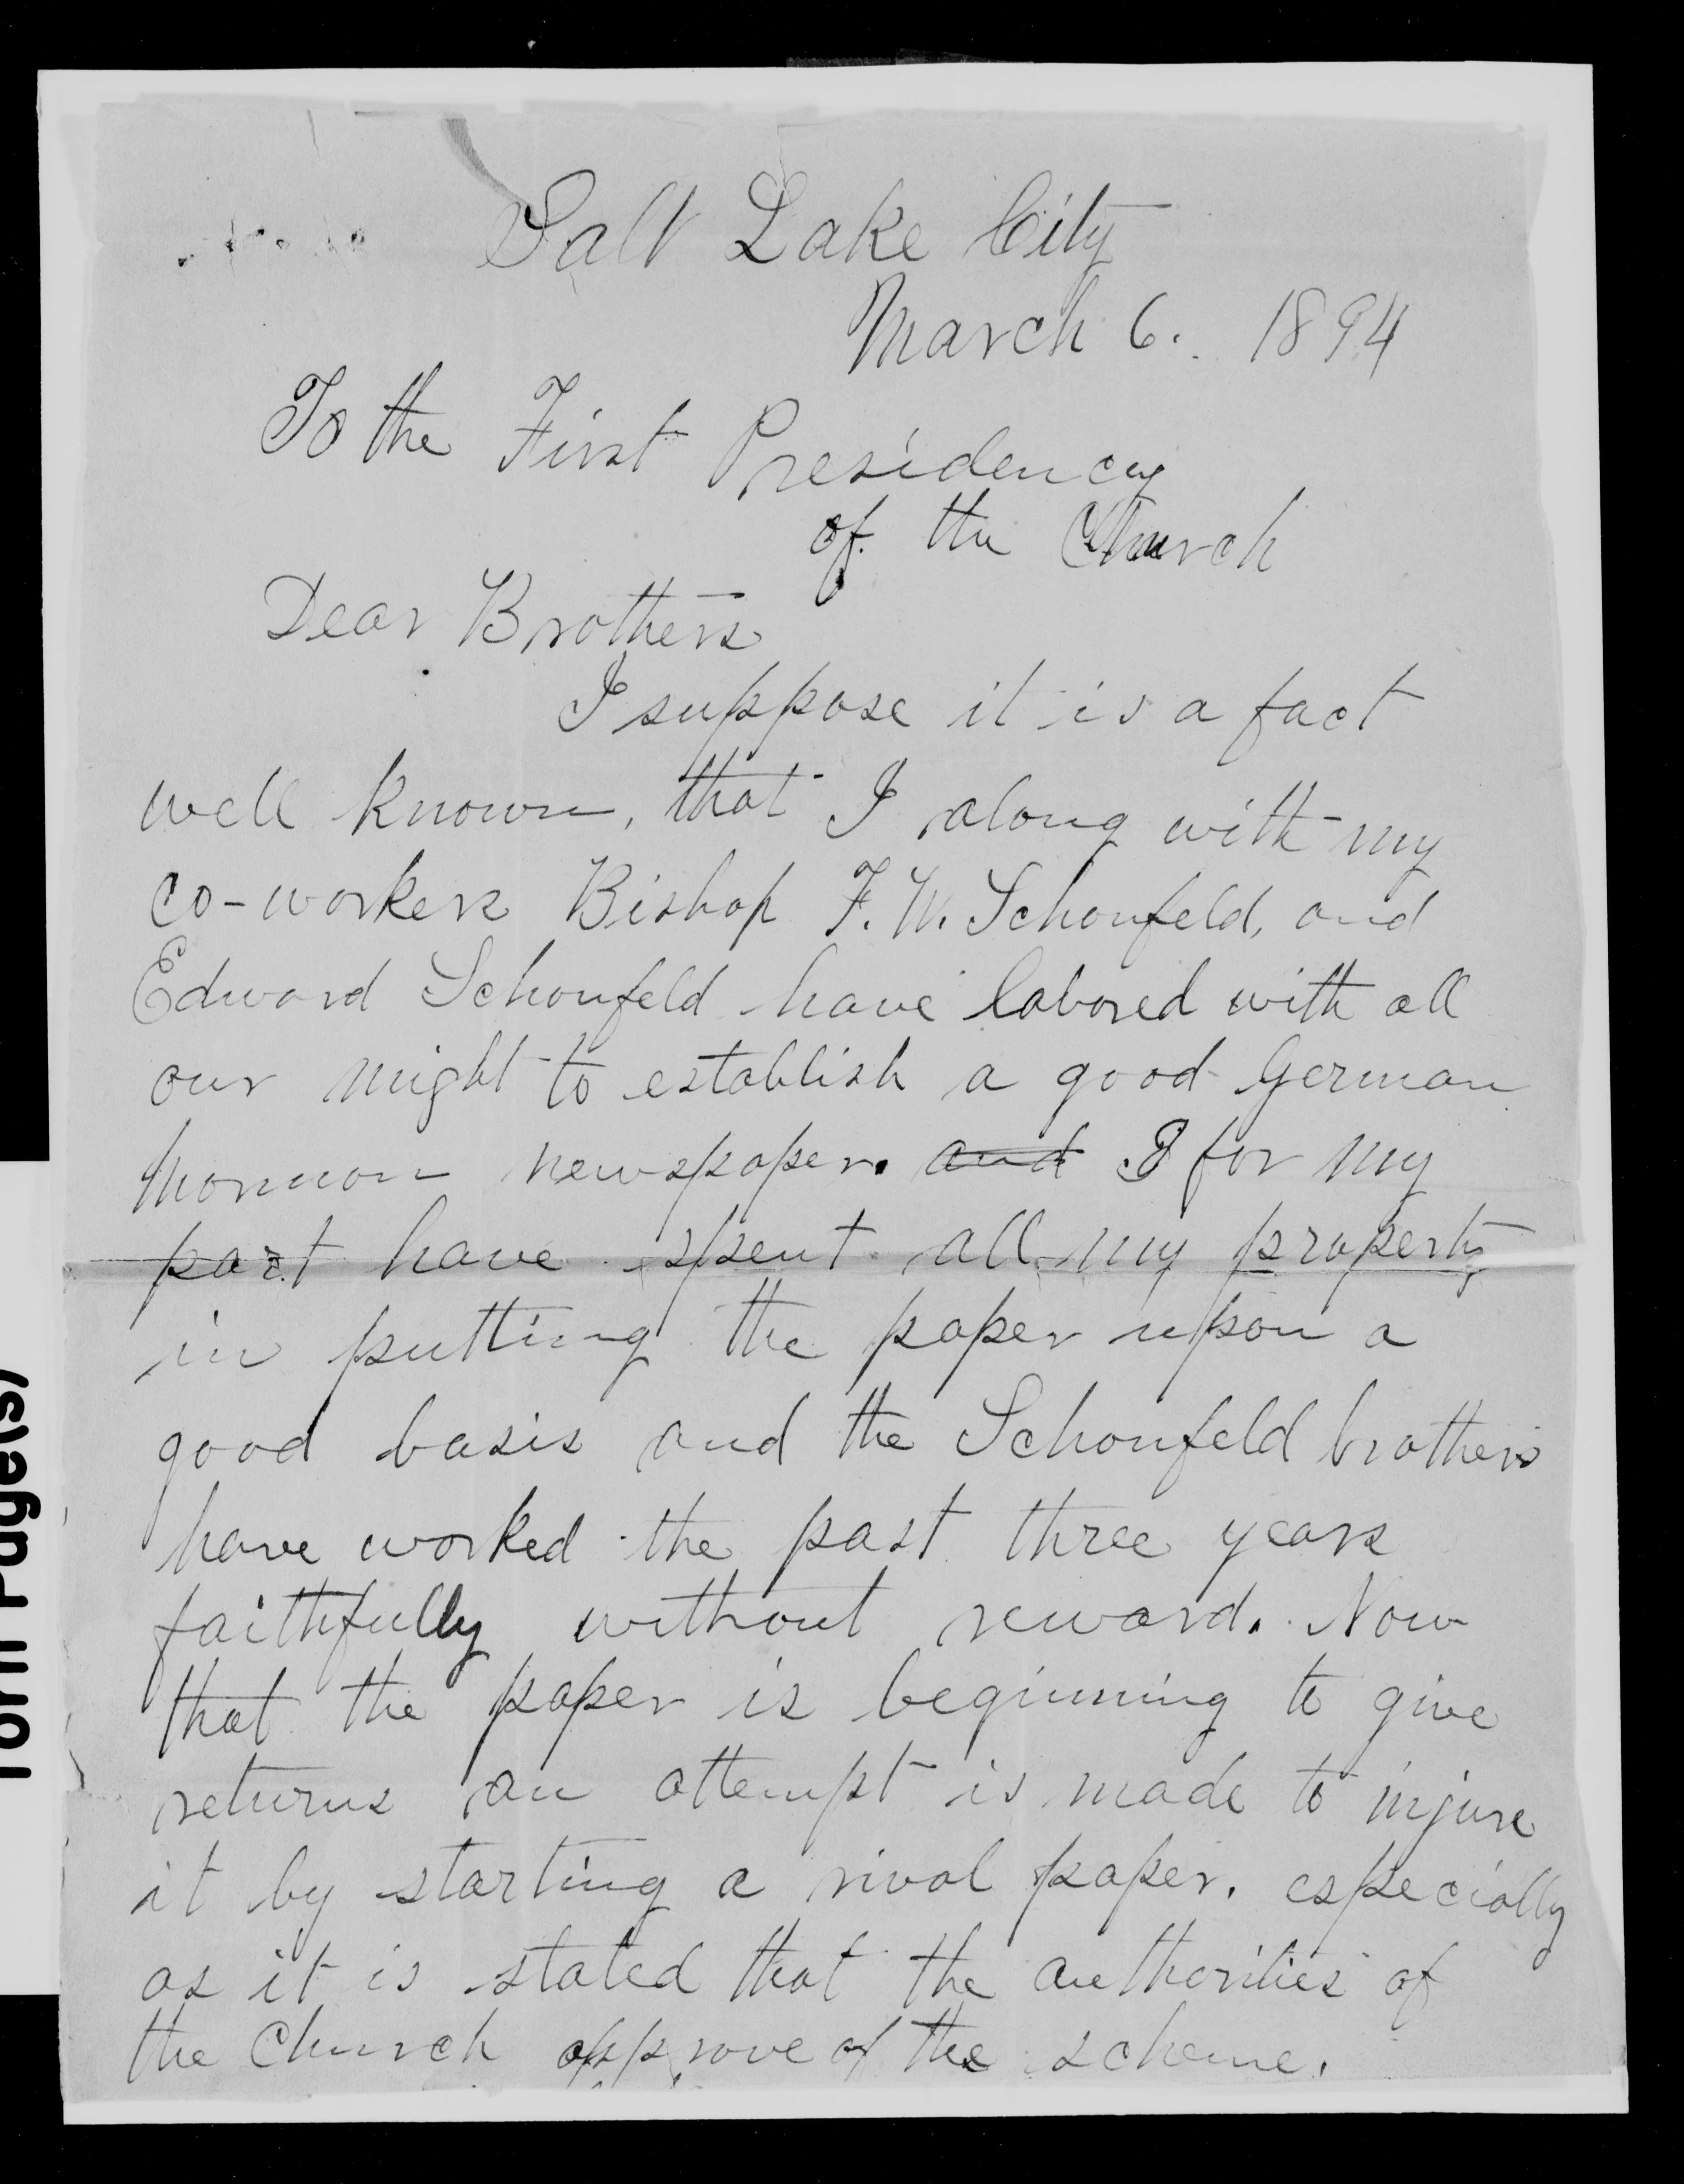 Salt Lake City
March 6. 1894
To the First Presidency
of the Church
Dear Brothers
I suppose it is a fact
well known, that I along with my
co-workers Bishop F. W. Schonfeld, and
Edward Schonfeld have labored with all
our might to establish a good German
Mormon newspaper. and I for my
part have spent all my property
in putting the paper upon a
good basis and the Schonfeld brothers
have worked the past three years
faithfully without reward. Now
that the paper is beginning to give
returns an attempt is made to injure
it by starting a rival paper, especially
as it is stated that the authorities of
the Church approve of the scheme.
Torn Page(s)